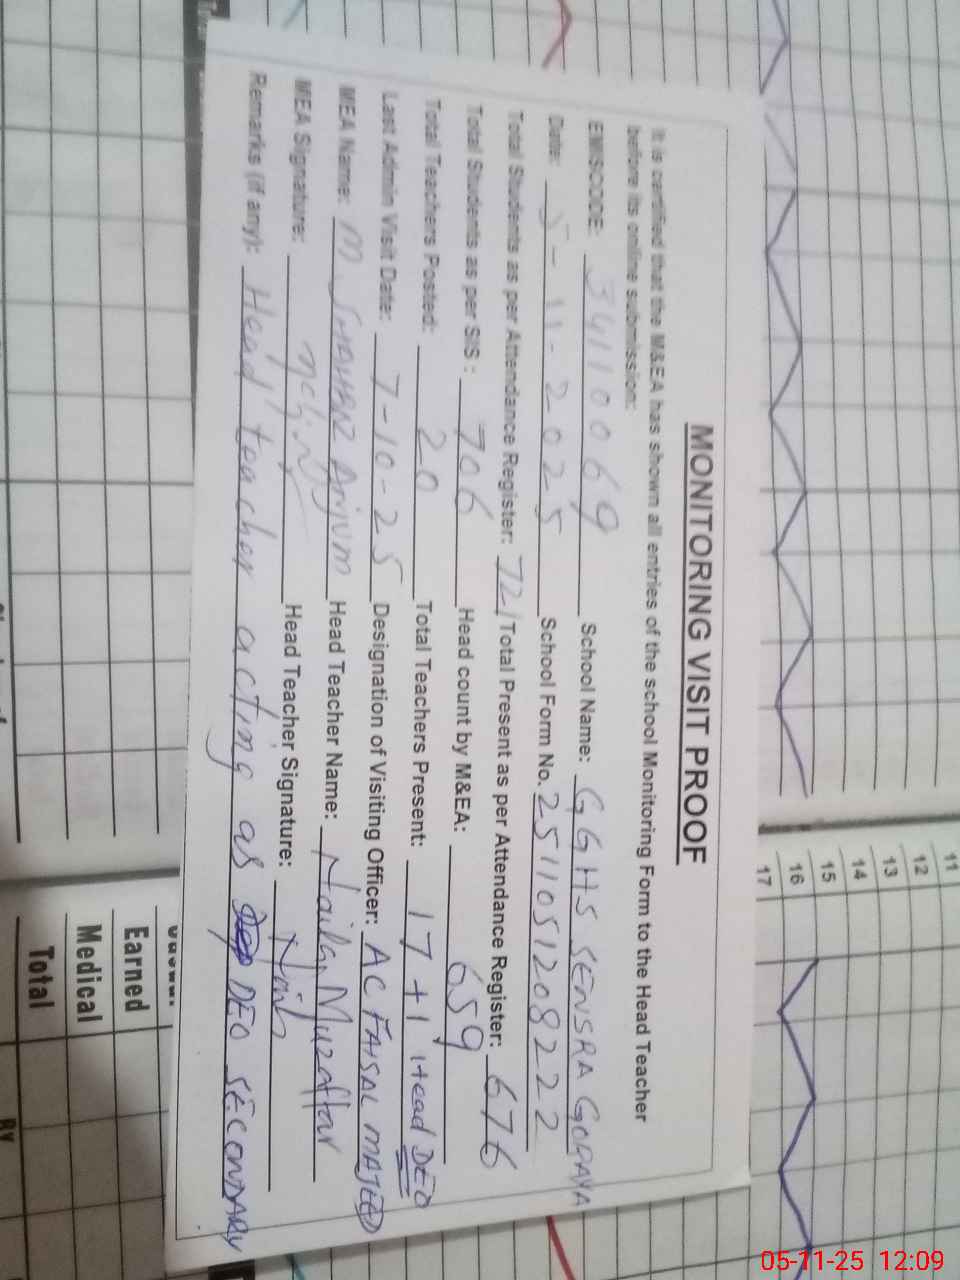 MONITORING VISIT PROOF
It is certified that the M&EA has shown all entries of the school Monitoring Form to the Head Teacher
before its online submission:
EMISCODE: 34110069 School Name: GGHS SENSRA GORAYA
Date: 5-11-2025 School Form No. 2511051208222
Total Students as per Attendance Register: 721 Total Present as per Attendance Register: 676
Total Students as per SIS: 706 Head count by M&EA: 659
Total Teachers Posted: 20 Total Teachers Present: 17+1 Head DEO
Last Admin Visit Date: 7-10-25 Designation of Visiting Officer: AC FAISAL MAJEED
MEA Name: M SHAHBAZ Anjum Head Teacher Name: Naila Muzaffar
MEA Signature: Head Teacher Signature: Naila
Remarks (if any): Head teacher acting as DEO SECONDARY
11
12
13
14
15
16
17
Earned
Medical
Total
By
05-11-25 12:09